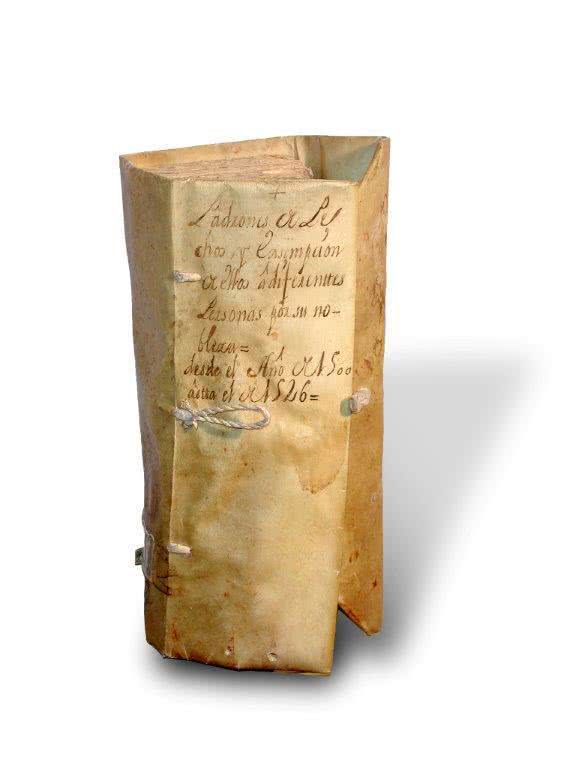 +
Padrones de Pe
chos y Exsimpcion
de ellos à diferentes
Personas por su no-
bleza=
desde el Año de 1500
asta el de 1526=